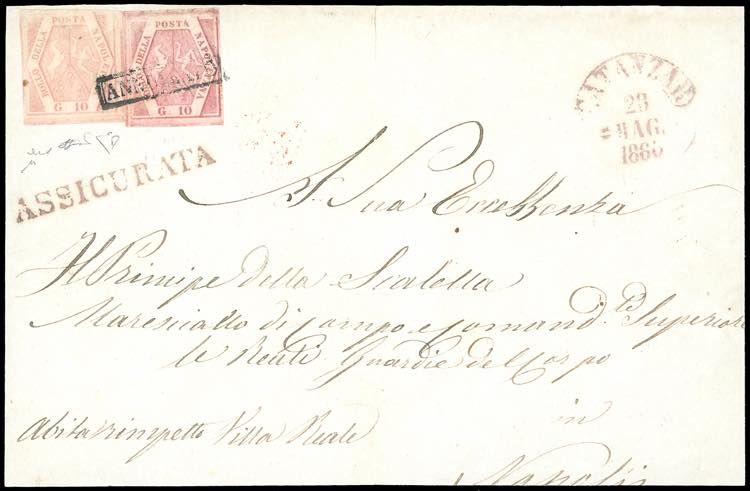 BOLLO DELLA POSTA NAPOLE
G. 10
DELLA POSTA NAPOL
G. 10
ANNULLATO
ASSICURATA
CATANZARO
23
MAG.
1860
A Sua Eccellenza
Il Principe della Scaletta
Maresciallo di Campo e Comand.te Superiore
le Reali Guardie del Corpo
in
abita rimpetto Villa Reale
Napoli